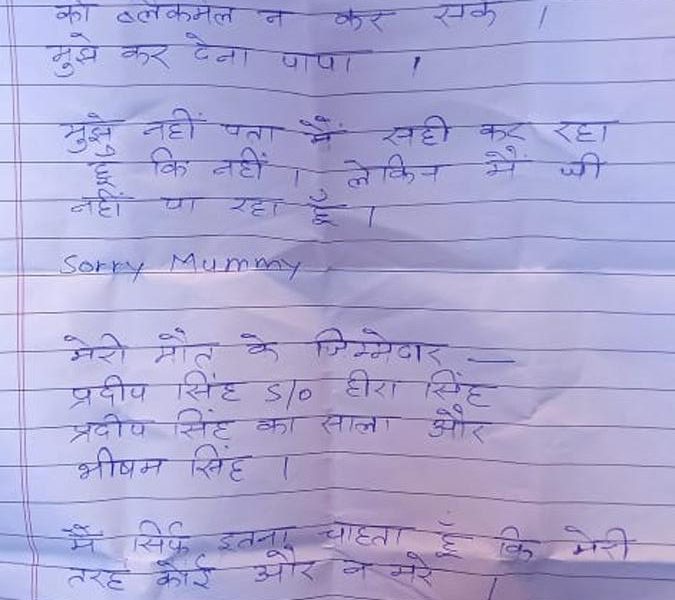 को ब्लेकमेल न कर सके ।
मुझे कर देना पापा ।
मुझे नहीं पता मैं सही कर रहा
हूँ कि नहीं । लेकिन मैं जी
नहीं पा रहा हूँ ।
Sorry Mummy
मेरी मौत के जिम्मेदार —
प्रदीप सिंह S/o हीरा सिंह
प्रदीप सिंह का साला और
भीषम सिंह ।
मैं सिर्फ इतना चाहता हूँ कि मेरी
तरह कोई और न मरे ।